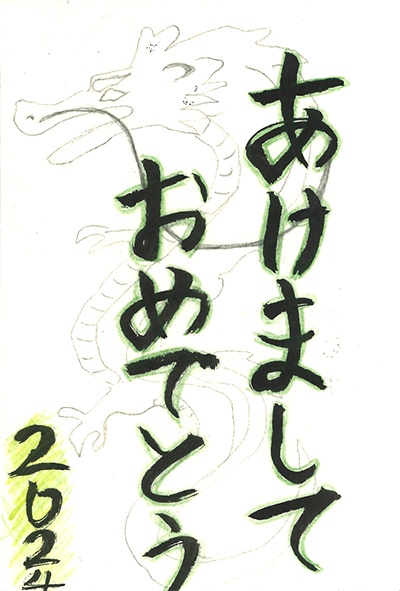 あけまして
おめでとう
2024